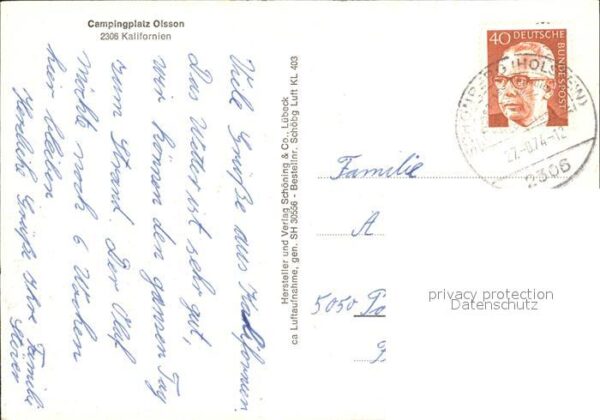 Campingplatz Olsson
2306 Kalifornien
Viele Grüße aus Kalifornien
Das Wetter ist sehr gut,
wir können den ganzen Tag
zum Strand. Der Olaf
möchte noch 6 Wochen
hier bleiben
Herzliche Grüße Ihre Familie
Stöver
Hersteller und Verlag Schöning & Co., Lübeck
ca Luftaufnahme, gen. SH 30556 - Bestellnr. Schöbg Luft KL 403
40 DEUTSCHE
BUNDESPOST
SCHÖNBERG (HOLSTEIN)
74-12
2306
Familie
A
5050
privacy protection
Datenschutz